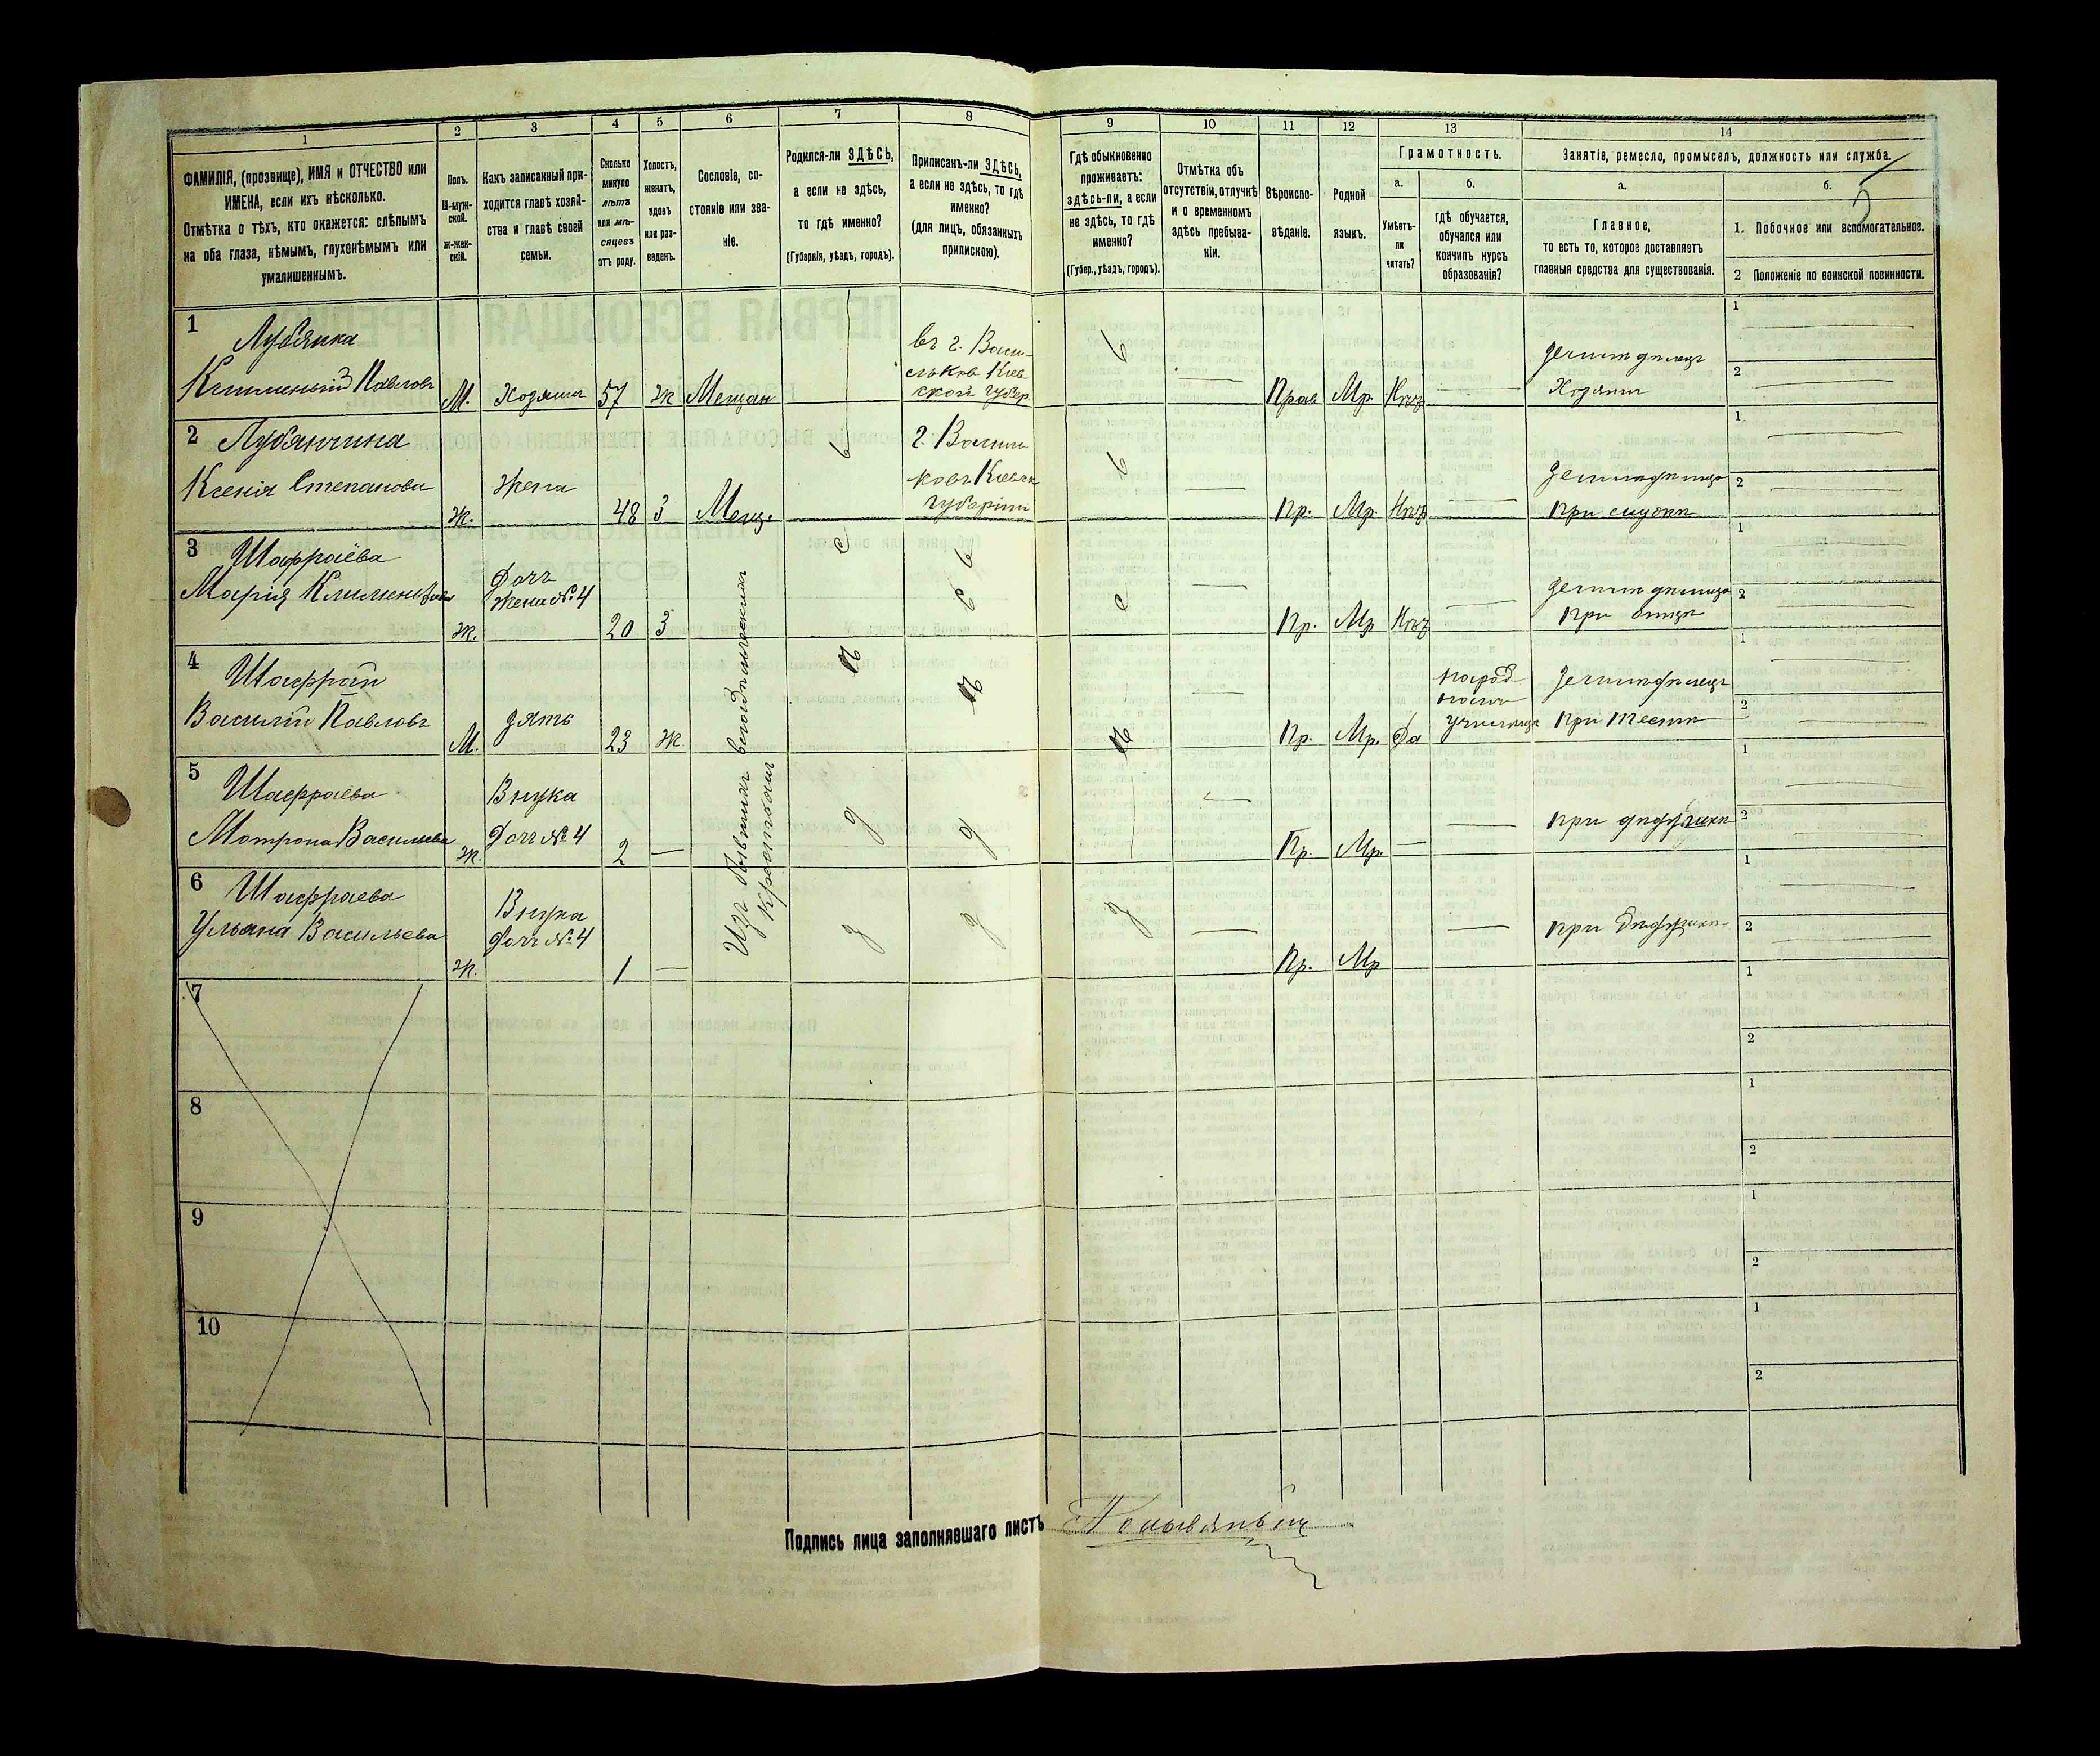 1
2
3
4
5
6
7
8
9
10
11
12
13
14
ФАМИЛІЯ, (прозвище), ИМЯ и ОТЧЕСТВО или
ИМЕНА, если ихъ нѣсколько.
Отмѣтка о тѣхъ, кто окажется: слѣпымъ
на оба глаза, нѣмымъ, глухонѣмымъ или
умалишеннымъ.
Полъ.
М-муж-
ской.
ж-жен-
скій.
Какъ записанный при-
ходится главѣ хозяй-
ства и главѣ своей
семьи.
Сколько
минуло
лѣтъ
или мѣ-
сяцевъ
отъ роду.
Холостъ,
женатъ,
вдовъ
или раз-
веденъ.
Сословіе, со-
стояніе или зва-
ніе.
Родился-ли ЗДѢСЬ,
а если не здѣсь,
то гдѣ именно?
(Губернія, уѣздъ, городъ).
Приписанъ-ли ЗДѢСЬ,
а если не здѣсь, то гдѣ
именно?
(для лицъ, обязанныхъ
припискою).
Гдѣ обыкновенно
проживаетъ:
здѣсь-ли, а если
не здѣсь, то гдѣ
именно?
(Губер., уѣздъ, городъ).
Отмѣтка объ
отсутствіи, отлучкѣ
и о временномъ
здѣсь пребыва-
ніи.
Вѣроиспо-
вѣданіе.
Родной
языкъ.
Грамотность.
а.
б.
Умѣетъ-
ли
читать?
гдѣ обучается,
обучался или
кончилъ курсъ
образованія?
Занятіе, ремесло, промыселъ, должность или служба.
5
а.
б.
Главное,
то есть то, которое доставляетъ
главныя средства для существованія.
1. Побочное или вспомогательное.
2 Положеніе по воинской повинности.
1
Лубянка
Климентій Павловъ
М. Хозяинъ 57 ж Мещан
въ г. Васи-
льков Киев
ской губер.
Прав Мр Нѣтъ
земледѣлецъ
Хозяинъ
1
2
2 Лубянчина
Ксенія Степанова
Жена
Ж. 48 З Мещ.
г. Василь
ковъ Киевск
губерніи
Пр. Мр Нѣтъ
земледѣлица
при мужѣ
1.
2
3 Шафраева
Марія Климентьева
Дочь
жена № 4
Ж. 20 З
Пр. Мр Нѣтъ
земледѣлица
при отцѣ
1
2
4
Шафран
Василій Павловъ
зять
М. 23 Ж
Изъ бывшихъ
крестьянъ
Пр. Мр. Да
народ-
номъ
училищѣ
земледѣлецъ
при тестѣ
1
2
5
Шафраева
Мотрона Васильева
Внука
Дочь № 4
ж. 2
Пр. Мр.
при дѣдушкѣ
1
2
6 Шафраева
Ульяна Васильева
Внука
Дочь № 4
ж. 1
Пр. Мр
при дѣдушкѣ
1
2
7
1
2
8
1
2
9
1
2
10
1
2
Подпись лица заполнявшаго листъ